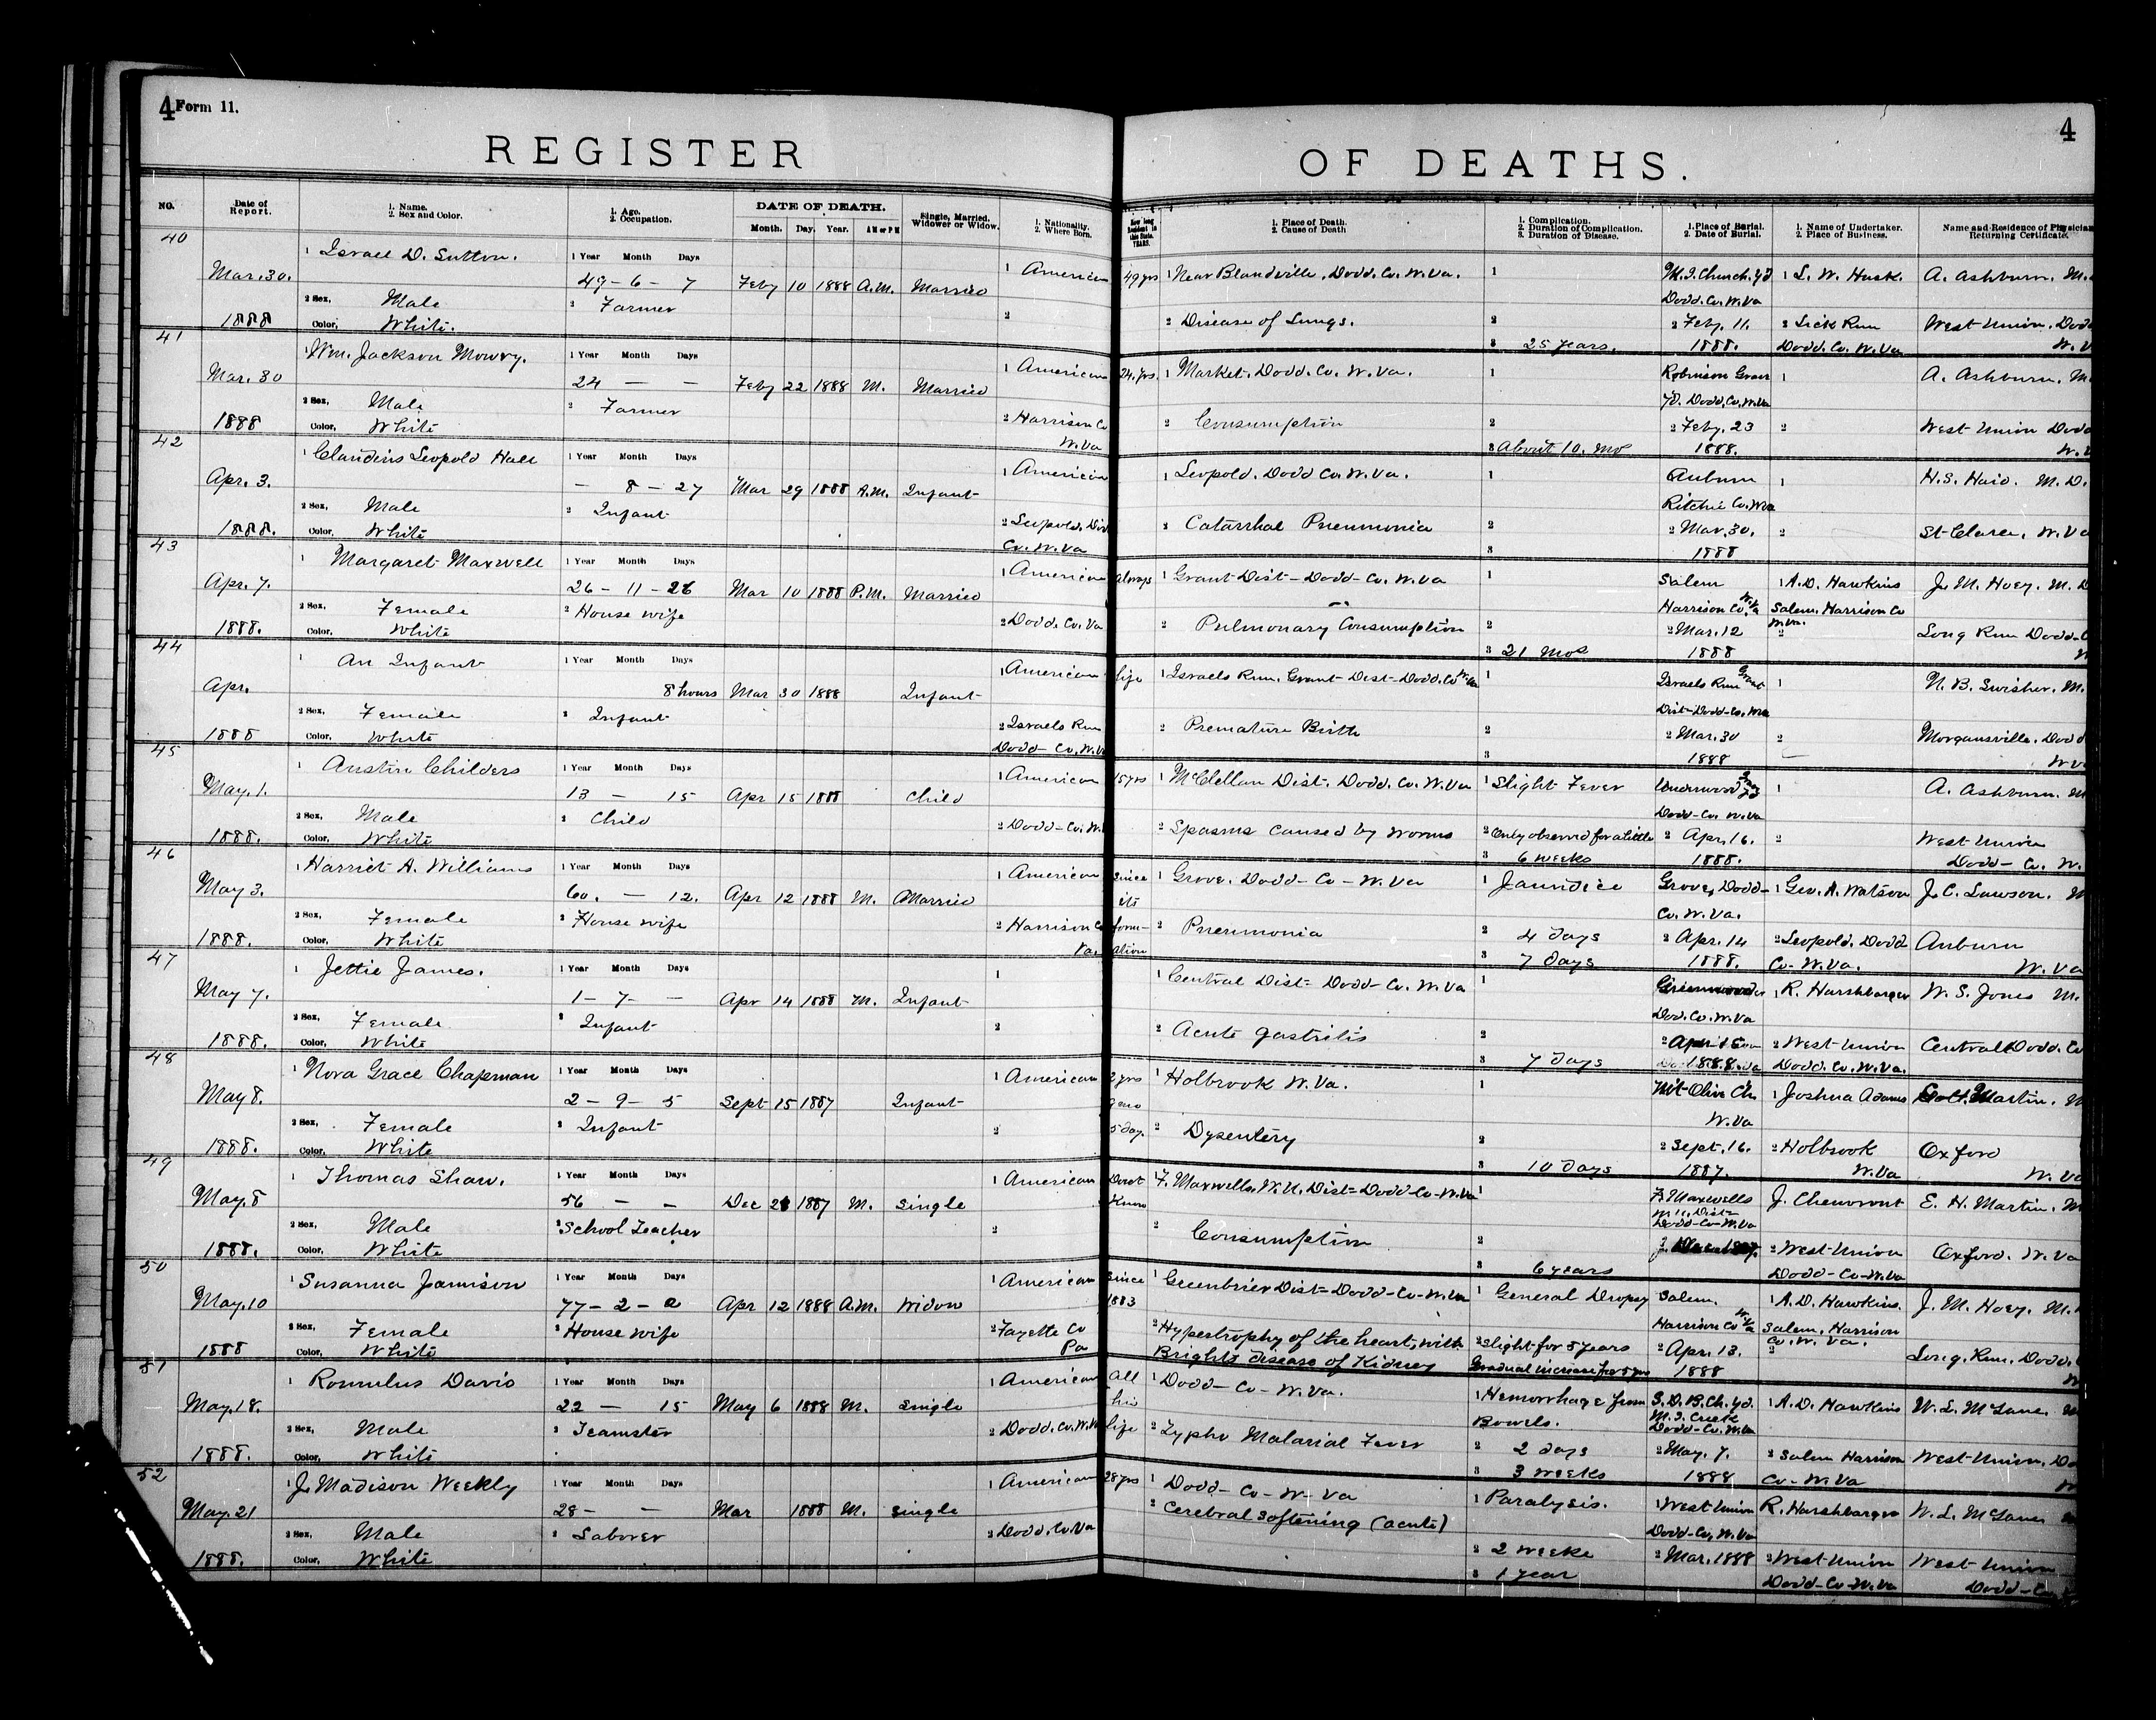 4 Form 11.
4
REGISTER OF DEATHS.
NO.
Date of Report.
1. Name.
2. Sex and Color.
1. Age.
2. Occupation.
DATE OF DEATH.
Month. Day. Year. A M or P M
Single, Married, Widower or Widow.
1. Nationality.
2. Where Born.
How long Resident in this State. YEARS.
1. Place of Death.
2. Cause of Death
1. Complication.
2. Duration of Complication.
3. Duration of Disease.
1. Place of Burial.
2. Date of Burial.
1. Name of Undertaker.
2. Place of Business.
Name and Residence of Physician
Returning Certificate.
40
1 Israel D. Sutton. 1 Year Month Days
Mar. 30. 49 - 6 - 7 Feby 10 1888 A.M. Married 1 American 49 yrs 1 Near Blandville, Dodd. Co. W. Va. 1 M. I. Church. yd 1 L. W. Husk. A. Ashburn. M.
2 Sex, Male 2 Farmer Dodd. Co. W. Va
1888 Color, White. 2 2 Disease of Lungs. 2 2 Feby. 11. 2 Lick Run West Union. Dodd
3 25 years. 1888. Dodd. Co. W. Va W. V
41
1 Wm. Jackson Mowry. 1 Year Month Days
Mar. 30 24 — — Feby 22 1888 M. Married 1 American 24. yrs. 1 Market. Dodd. Co. W. Va. 1 Robinson Grave 1 A. Ashburn. M.
2 Sex, Male 2 Farmer yd. Dodd. Co. W. Va
1888 Color, White 2 Harrison Co W. Va 2 Consumption 2 2 Feby. 23 2 West Union Dodd
3 About 10. Mos 1888. W. V
42
1 Claudius Leopold Hall 1 Year Month Days
Apr. 3. — 8 — 27 Mar 29 1888 A.M. Infant 1 American 1 Leopold. Dodd Co. W. Va. 1 Auburn 1 H. S. Haid. M. D.
2 Sex, Male 2 Infant Ritchie Co. W Va
1888. Color, White 2 Leopold. Dod Co. W. Va 2 Catarrhal Pneumonia 2 2 Mar. 30. 2 St Clara. W. Va
3 1888
43
1 Margaret Maxwell 1 Year Month Days
Apr. 7. 26 - 11 - 26 Mar 10 1888 P.M. Married 1 American always 1 Grant Dist - Dodd - Co. W. Va 1 Salem 1 A. D. Hawkins J. M. Hoey. M. D
2 Sex, Female 2 House wife Harrison Co. W. Va Salem. Harrison Co W. Va.
1888. Color, White 2 Dodd. Co. Va 2 Pulmonary Consumption 2 2 Mar. 12 2 Long Run Dodd - C
3 21 Mos 1888
44
1 An Infant 1 Year Month Days
Apr. 8 hours Mar 30 1888 Infant 1 American life 1 Israels Run. Grant - Dist - Dodd. Co W. Va 1 Israels Run Grant 1 N. B. Swisher. M.
2 Sex, Female 2 Infant Dist - Dodd - Co. W Va
1888 Color, White 2 Israels Run Dodd - Co. W. V 2 Premature Birth 2 2 Mar. 30 2 Morgansville. Dodd
3 1888 — W V
45
1 Austin Childers 1 Year Month Days
May. 1. 13 — 15 Apr 15 1888 Child 1 American 15 yrs 1 McClellan Dist. Dodd. Co. W. Va 1 Slight Fever Underwood 1 A. Ashburn. M
2 Sex, Male 2 Child Dodd - Co. W Va
1888. Color, White 2 Dodd - Co. W. 2 Spasms caused by worms 2 Only observed for a little 2 Apr. 16. 2 West Union
3 6 weeks 1888. Dodd - Co. W.
46
1 Harriet A. Williams 1 Year Month Days
May 3. 60. — 12. Apr 12 1888 M. Married 1 American since its form-ation 1 Grove. Dodd - Co - W. Va 1 Jaundice Grove, Dodd - 1 Geo. A. Watson J. C. Lawson. M
2 Sex, Female 2 House wife Co. W. Va.
1888. Color, White 2 Harrison Co Va. 2 Pneumonia 2 4 days 2 Apr. 14 2 Leopold. Dodd Auburn
3 7 days 1888. Co - W. Va. W. Va
47
1 Jettie James. 1 Year Month Days
May 7. 1 - 7 - — Apr 14 1888 M. Infant 1 1 Central Dist - Dodd - Co. W. Va 1 Greenwood 1 R. Harshbarger W. S. Jones M.
2 Sex, Female. 2 Infant Dod. Co. W. Va
1888. Color, White 2 2 Acute gastritis 2 2 Apr 15 2 West Union Central Dodd. Co
3 7 days 1888. Dodd. Co. W. Va.
48
1 Nova Grace Chapman 1 Year Month Days
May 8. 2 - 9 - 5 Sept 15 1887 Infant 1 American 2 yrs 9 mo 5 day. 1 Holbrook W. Va. 1 Mt Olive Ch. 1 Joshua Adams Martin. M
2 Sex, Female 2 Infant W. Va
1888. Color, White 2 2 Dysentery 2 2 Sept. 16. 2 Holbrook Oxford
3 10 days 1887. W. Va W. Va
49
1 Thomas Shaw. 1 Year Month Days
May. 8 56 — — Dec 21 1887 M. Single 1 American Dont Know 1 F. Maxwells, W. U. Dist - Dodd - Co - W. Va 1 F. Maxwells J. Chenvront E. H. Martin. M
2 Sex, Male 2 School Teacher W. U. Dist - Dodd - Co - W. Va
1888. Color, White 2 2 Consumption 2 2 West Union Oxford. W. Va
3 6 years Dodd - Co - W. Va
50
1 Susanna Jamison 1 Year Month Days
May. 10 77 - 2 - 2 Apr 12 1888 A.M. Widow 1 American since 1883 1 Greenbrier Dist - Dodd - Co - W. Va 1 General Dropsy Salem. 1 A. D. Hawkins. J. M. Hoey. M.
2 Sex, Female 2 House wife Harrison Co W. Va Salem. Harrison Co. W. Va.
1888 Color, White 2 Fayette Co Pa 2 Hypertrophy of the heart, with 2 Slight for 5 years 2 Apr. 13. 2 Long. Run. Dodd.
Brights disease of Kidney Gradual increase for 5 yrs 1888
51
1 Romulus Davis 1 Year Month Days
May. 18. 22 — 15 May 6 1888 M. Single 1 American All his life 1 Dodd - Co - W. Va. 1 Hemorrhage from Bowels. S. D. B. Ch. yd. 1 A. D. Hawkins W. L. McLane M
2 Sex, Male 2 Teamster M. I. Creek Dodd - Co. W. Va
1888. Color, White 2 Dodd. Co. W. Va 2 Typho Malarial Fever 2 2 days 2 May. 7. 2 Salem Harrison West Union. Do
3 3 weeks 1888 Co - W. Va
52
1 J. Madison Weekly 1 Year Month Days
May. 21 28 - — Mar 1888 M. Single 1 American 28 yrs 1 Dodd - Co - W - Va 1 Paralysis. 1 West Union R. Harshbarger W. L. McLane
2 Sex, Male 2 Laborer 2 Cerebral Softening (acute) Dodd - Co. W. Va
1888. Color, White 2 Dodd. Co. Va 2 2 weeks 2 Mar. 1888 2 West Union West Union
3 1 year Dodd - Co - W. Va Dodd - Co.